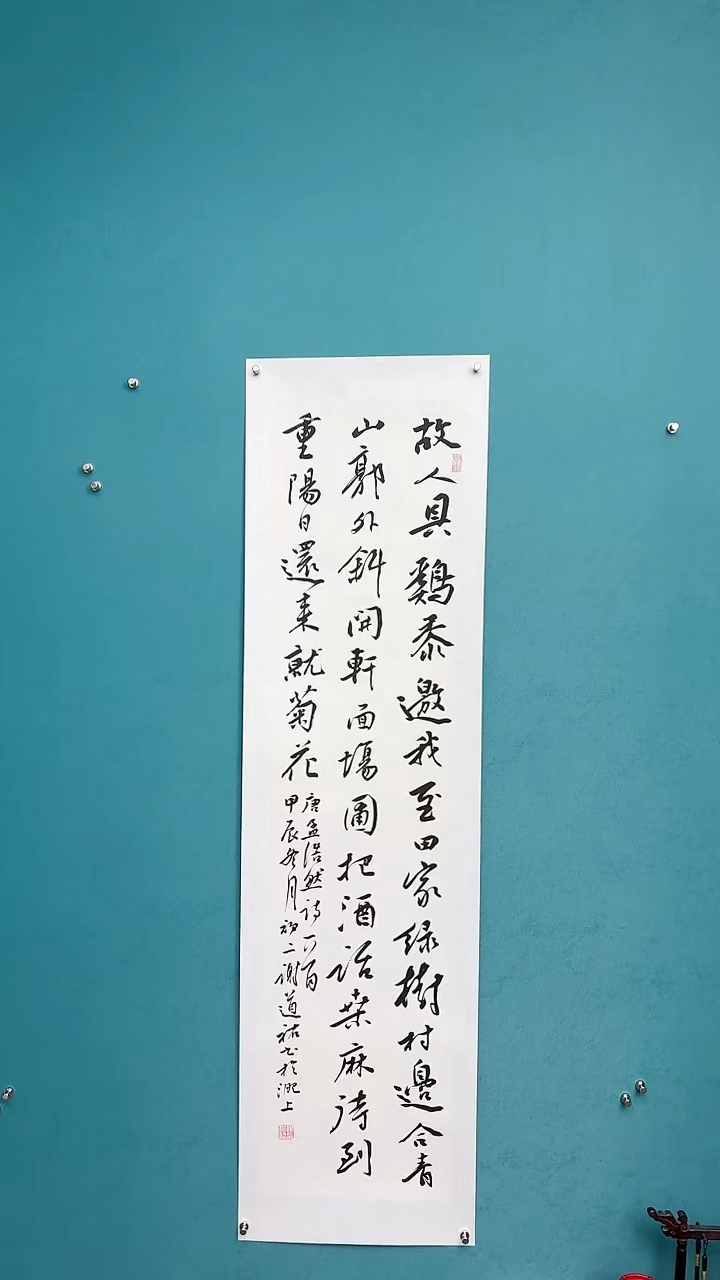 故人具鷄黍邀我至田家綠樹村邊合青
山郭外斜開軒面場圃把酒話桑麻待到
重陽日還来就菊花
唐孟浩然詩一首
甲辰冬月初二謝道祐书於淝上